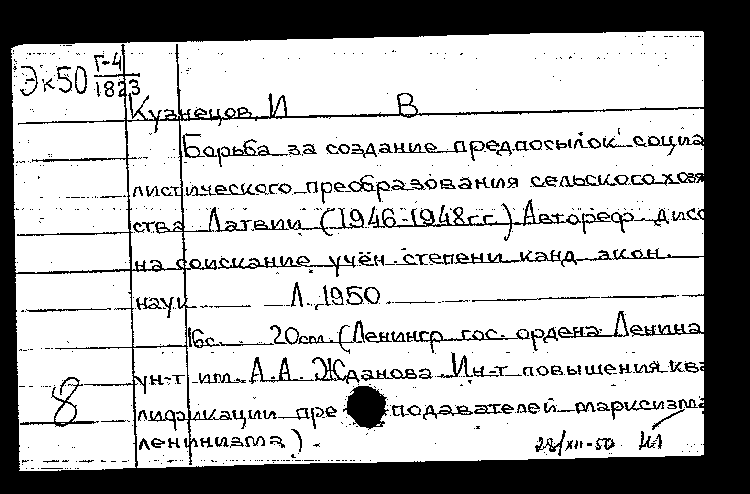 Эк50 Г-4
1823
Кузнецов, И В
Борьба за создание предпосылок социа
листического преобразования сельского хозя
ства Латвии (1946-1948гг.) Автореф. дисс
на соискание учён. степени канд. экон.
наук Л., 1950
16с. 20см. (Ленингр. гос. ордена Ленина
ун-т им. А.А. Жданова. Ин-т повышения ква
8 лификации преподавателей марксизма
ленинизма).
28/XII-50